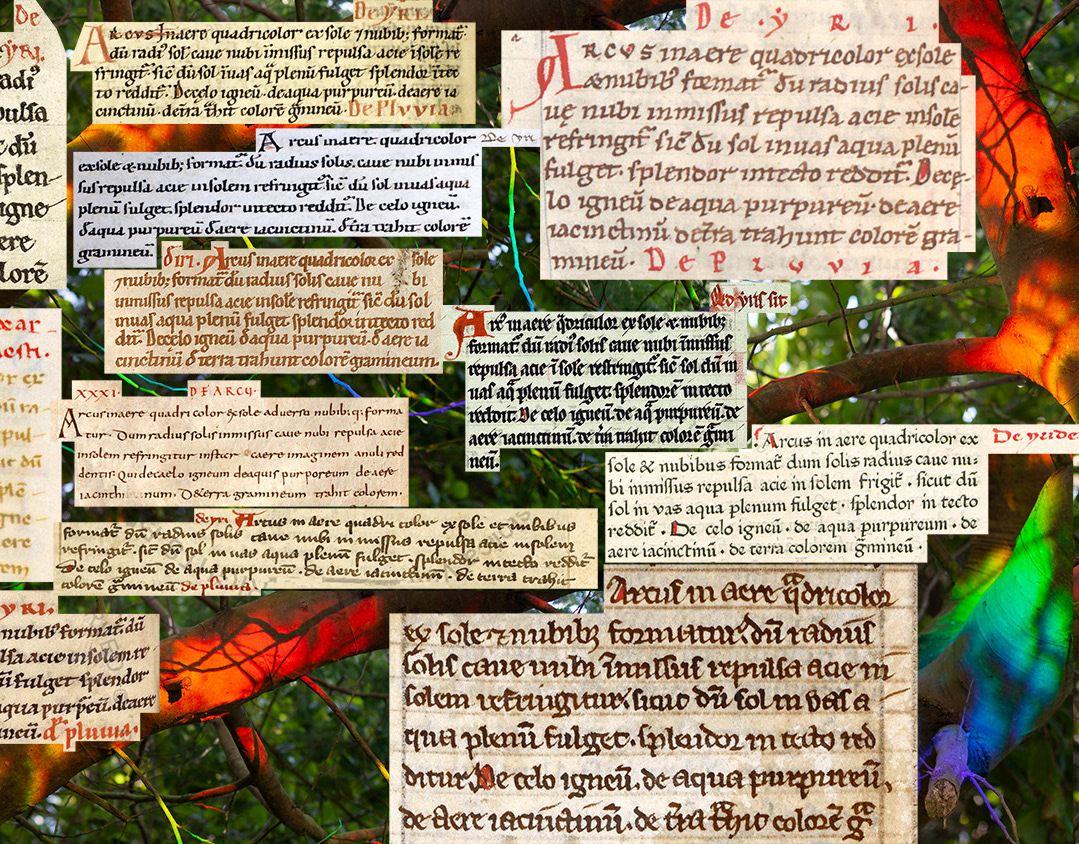 De
ẏRI.
adi⁹
pulsa
c dū
splen
igne
ere
lorē
De YRI.
Arcus inaere quadricolor ex sole ⁊ nubib; format̄
dū radi⁹ sol̄ caue nubi īmissus repulsa acie īsolē re
fringit̄ sic̄ dū sol īuas aq̄ plenū fulget splendor ītec
to reddit̄. Decelo igneū. deaqua purpureū. deaera ia
cinctinū. det̄ra t̄hit colorē ḡmineū. De Pluvia
De yri
Arcus inaere. quadricolor
exsole & nubib; format̄. dū radius solis. caue nubi inmis
sus repulsa acie insolem refringit̄. sic̄ dū sol inuas aqua
plenū fulget. splendor intecto reddit̄. De celo igneū.
d̄aqua purpureū d̄aere iacinctinū. d̄t̄ra trahit colorē
gramineū.
De . ẏ R I .
Arcus inaere quadricolor exsole
&nubib; format̄ dū radius solis ca-
uę nubi inmissus repulsa acie insole
refringit̄ sic̄ dū sol inuas aqua plenū
fulget. splendor intecto reddit̄. Decę-
lo igneū deaqua purpureū. deaere
iacinctinū det̄ra trahunt colorē gra-
mineū. De Pluvia.
d̄ iri. Arcus inaere quadricolor ex sole
⁊nubib; format̄ dū radius solis caue nu bi
inmissus repulsa acie insolē refringit̄ sic̄ dū sol
inuas aqua plenū fulget splendor intecto red
dit̄. Decelo igneū d̄aqua purpureū. d̄ aere
cinctiniū d̄ terra trahunt colorē gramineum.
Qd̄ yris sit
Arc⁹ in aere q̄dricolor ex sole & nubib;
format̄. dū radi⁹ solis caue nubi īmissus
repulsa acie ī sole refringit̄ sic̄ sol dū in
uas aq̄ plenū fulget. splendorē in tecto
reddit̄. De celo igneū. de aq̄ purpureū. de
aere iacinctinū. de t̄ra trahit colorē gmī
neū.
XXXI. DE ARCU.
Arcus inaere quadri color exsole aduersa nubib;q; forma
tur. Dum radius solis inmissus caue nubi repulsa acie
insolem refringitur instar caere imaginem anuli red
dentis Quidecaelo igneum deaquis purporeum deaere
iacinthi num. D&erra gramineum trahit colorem.
De yride
Arcus in aere quadricolor ex
sole & nubibus format̄ dum solis radius caue nu-
bi inmissus repulsa acie in solem frigit̄. sicut dū
sol in vas aqua plenum fulget. splendor in tecto
reddit̄. De celo igneū. de aqua purpureum. de
aere iacinctinū. de terra colorem ḡmineū.
de yri Arcus in aere quadri color ex sole et nubibus
format̄ dū radius solis caue nubi in missus repulsa acie insolem
refringit̄. sic̄ dū sol in uas aqua plenū fulget. splendor intecto reddit̄
De celo igneū de aqua purpureū. de aere iacinctinū. de terra trahit
colorē ḡmineū de pluuia.
Arcus in aere q̄dricolor
ex sole ⁊ nubib; formatur. dū radius
solis caue nubi īmissus repulsa acie in
solem refringitur. sicut dū sol in vas a
qua plenū fulget. splendor in tecto red
ditur. De celo igneū. de aqua purpureū,
de aere iacinctinū. de t̄ra t̄hit colorē ḡ
yRI.
nubib; format̄ dū
lsa acie insolem re
ū fulget splendor
aqua purp̄eū. deaere
neū. d̄ pluuia.